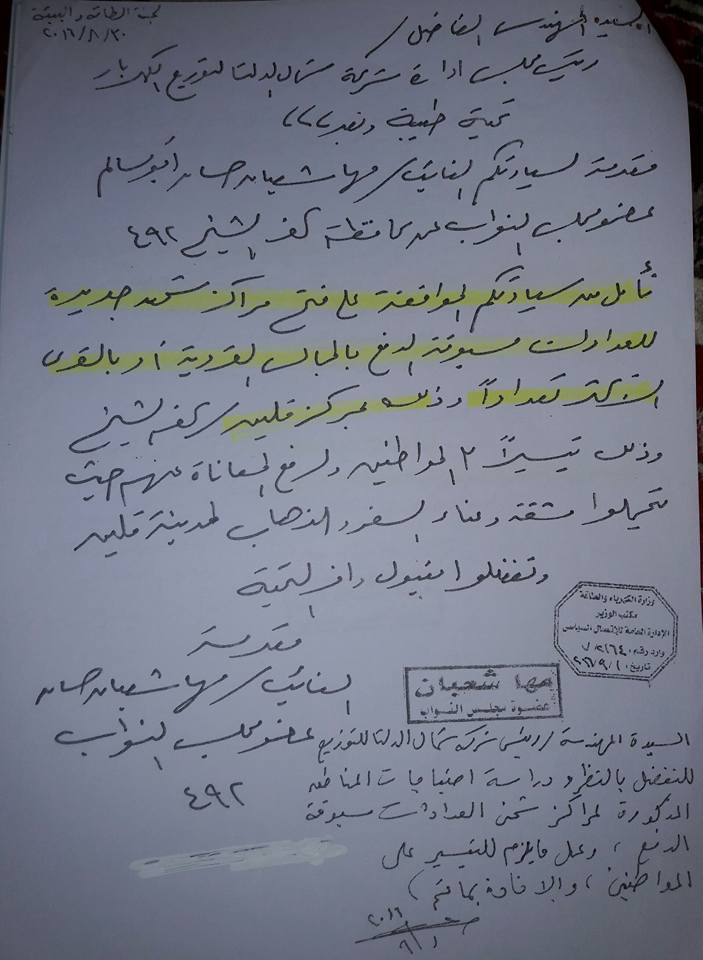 لجنة الطاقة والبيئة
٢٠١٦/٨/٣٠
السيد المهندس الفاضل /
رئيس مجلس ادارة شركة شمال الدلتا لتوزيع الكهرباء
تحية طيبة وبعد،،،
مقدمة لسيادتكم النائبة/ مها شعبان حسان ابو سالم
عضو مجلس النواب عن محافظة كفر الشيخ ٤٩٢
نأمل من سيادتكم الموافقة على فتح مراكز شحن جديدة
للعدادات مسبوقة الدفع بالمجالس القروية أو بالقرى
الاكثر تعداداً وذلك بمركز قلين / كفر الشيخ
وذلك تيسيراً المواطنين ولرفع المعاناة عنهم حيث
يتحملوا مشقة وعناء السفر والذهاب لمدينة قلين
وتفضلوا بقبول وافر التحية
مقدمة
النائبة/ مها شعبان حسان
عضو مجلس النواب
٤٩٢
وزارة الكهرباء والطاقة
مكتب الوزير
الإدارة العامة للإتصال السياسى
وارد رقم:
تاريخ: ٢٠١٦/٩/١
مها شعبان
عضوة مجلس النواب
السيدة المهندسة / رئيس شركة شمال الدلتا للتوزيع
للتفضل بالنظر ودراسة احتياجات المناطق
المذكورة لمراكز شحن العدادات مسبوقة
الدفع ، وعمل مايلزم للتيسير على
المواطنين ، والإفادة بما تم
٢٠١٦
٩/١